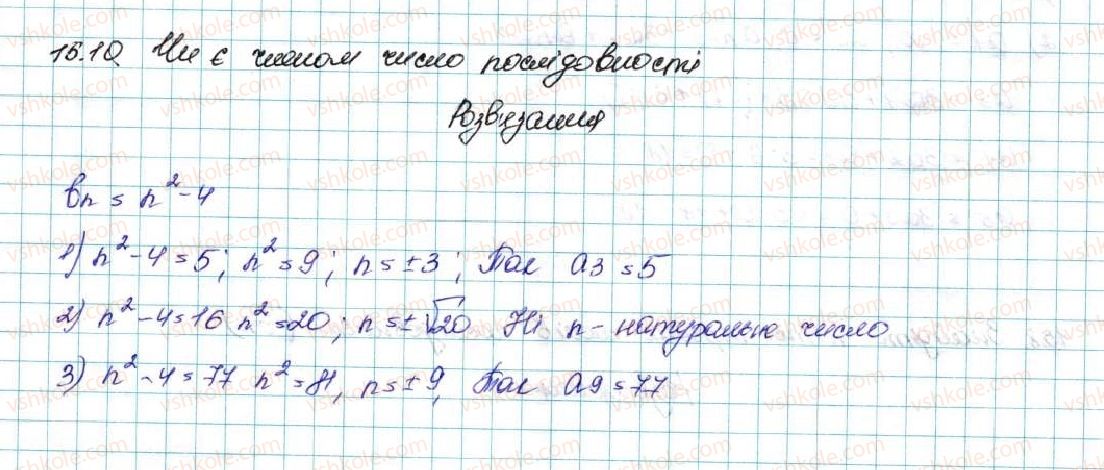 15.10. Чи є членом число послідовності
Розв'язання
bn = n² - 4
1) n² - 4 = 5; n² = 9; n = ±3; Так a3 = 5
2) n² - 4 = 16, n² = 20; n = ±√20 Ні n - натуральне число
3) n² - 4 = 77 n² = 81, n = ±9, Так a9 = 77